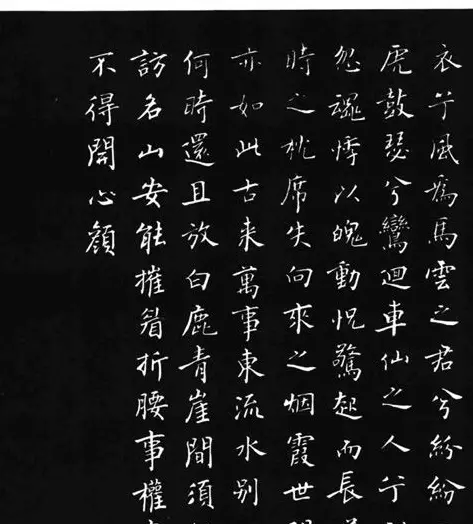 衣兮風爲馬雲之君兮紛紛
虎鼓瑟兮鸞迴車仙之人兮
忽魂悸以魄動怳驚起而長
時之枕席失向來之烟霞世
亦如此古来萬事東流水别
何時還且放白鹿青崖間須
訪名山安能摧眉折腰事權
不得開心顔